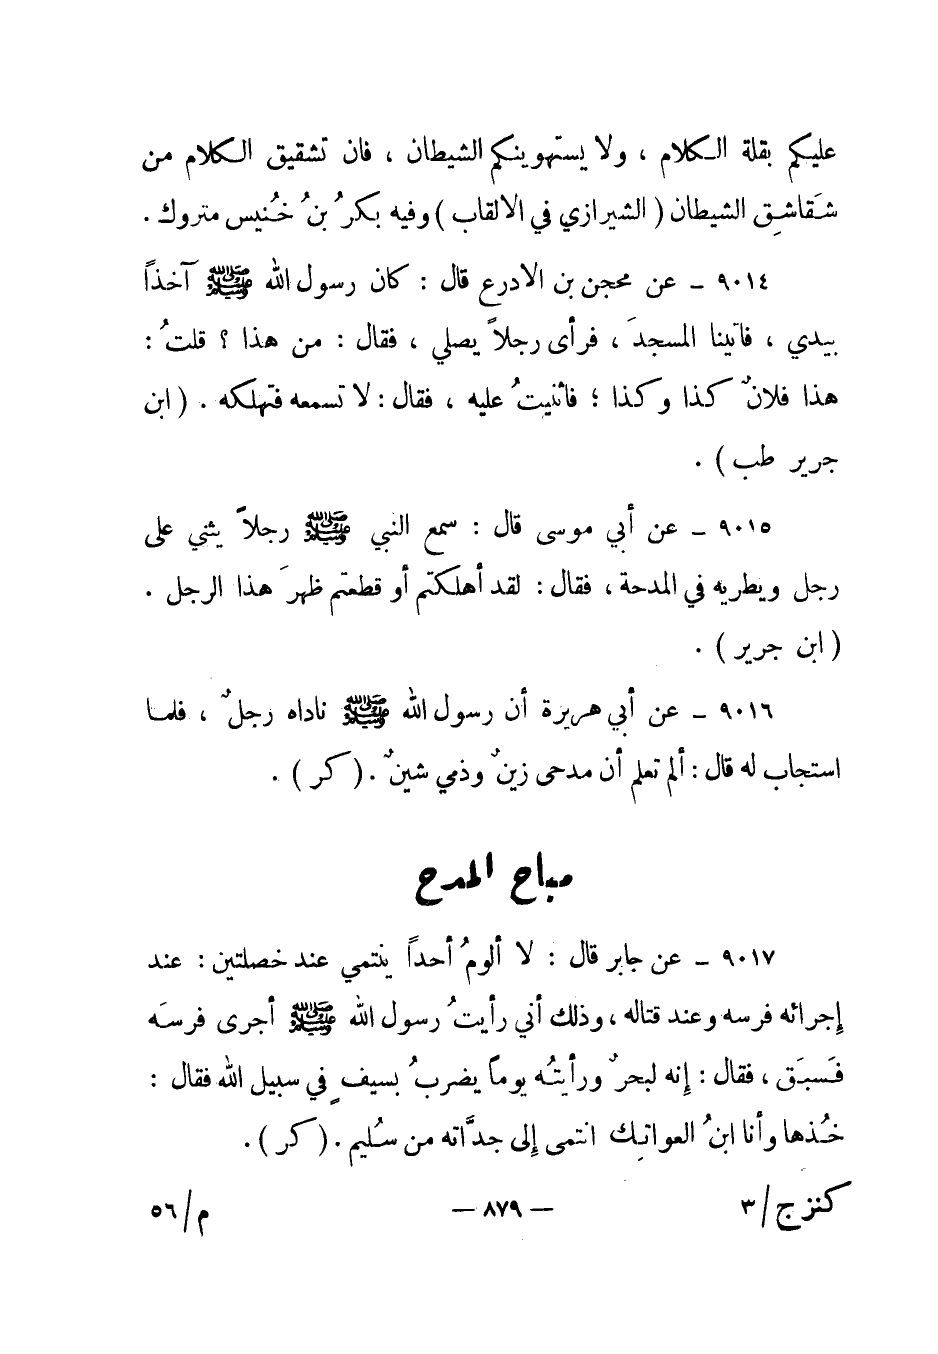 عليكم بقلة الكلام ، ولا يستهوينكم الشيطان ، فان تشقيق الكلام من
شَقاشِق الشيطان ( الشيرازي في الالقاب ) وفيه بكرُ بنُ خُنيس متروك .
٩٠١٤ ـ عن محجن بن الادرع قال : كان رسول الله ﷺ آخذاً
بيدي ، فأتينا المسجدَ ، فرأى رجلاً يصلي ، فقال : من هذا ؟ قلتُ :
هذا فلانٌ كذا وكذا ؛ فأثنيتُ عليه ، فقال : لا تسمعه فتهلكه . ( ابن
جرير طب ) .
٩٠١٥ ـ عن أبي موسى قال : سمع النبي ﷺ رجلاً يثني على
رجل ويطريه في المدحة ، فقال : لقد أهلكتم أو قطعتم ظهرَ هذا الرجل .
( ابن جرير ) .
٩٠١٦ ـ عن أبي هريرة أن رسول الله ﷺ ناداه رجلٌ ، فلما
استجاب له قال : ألم تعلم أن مدحى زينٌ وذمي شينٌ . ( كر ) .
مباح المدح
٩٠١٧ ـ عن جابر قال : لا ألومُ أحداً ينتمي عند خصلتين : عند
إجرائه فرسه وعند قتاله ، وذلك أني رأيتُ رسول الله ﷺ أجرى فرسَه
فَسبَق ، فقال : إنه لبحرٌ ورأيتُه يوماً يضربُ بسيفٍ في سبيل الله فقال :
خُذها وأنا ابنُ العواتِك انتمى إلى جدَّاته من سُليم . ( كر ) .
كنز ج/٣ — ٨٧٩ — م/٥٦